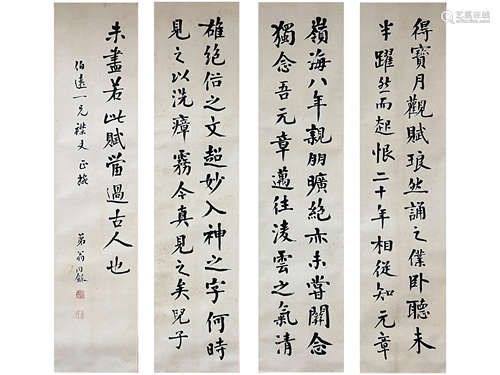 得寶月觀賦琅然誦之僕卧聽未
半躍然而起恨二十年相從知元章
嶺海八年親朋曠絕亦未嘗關念
獨念吾元章邁往淩雲之氣清
雄絕俗之文超妙入神之字何時
見之以洗瘴霧今真見之矣兒子
未盡若此賦當過古人也
伯遠一兄襟丈正
弟翁同龢